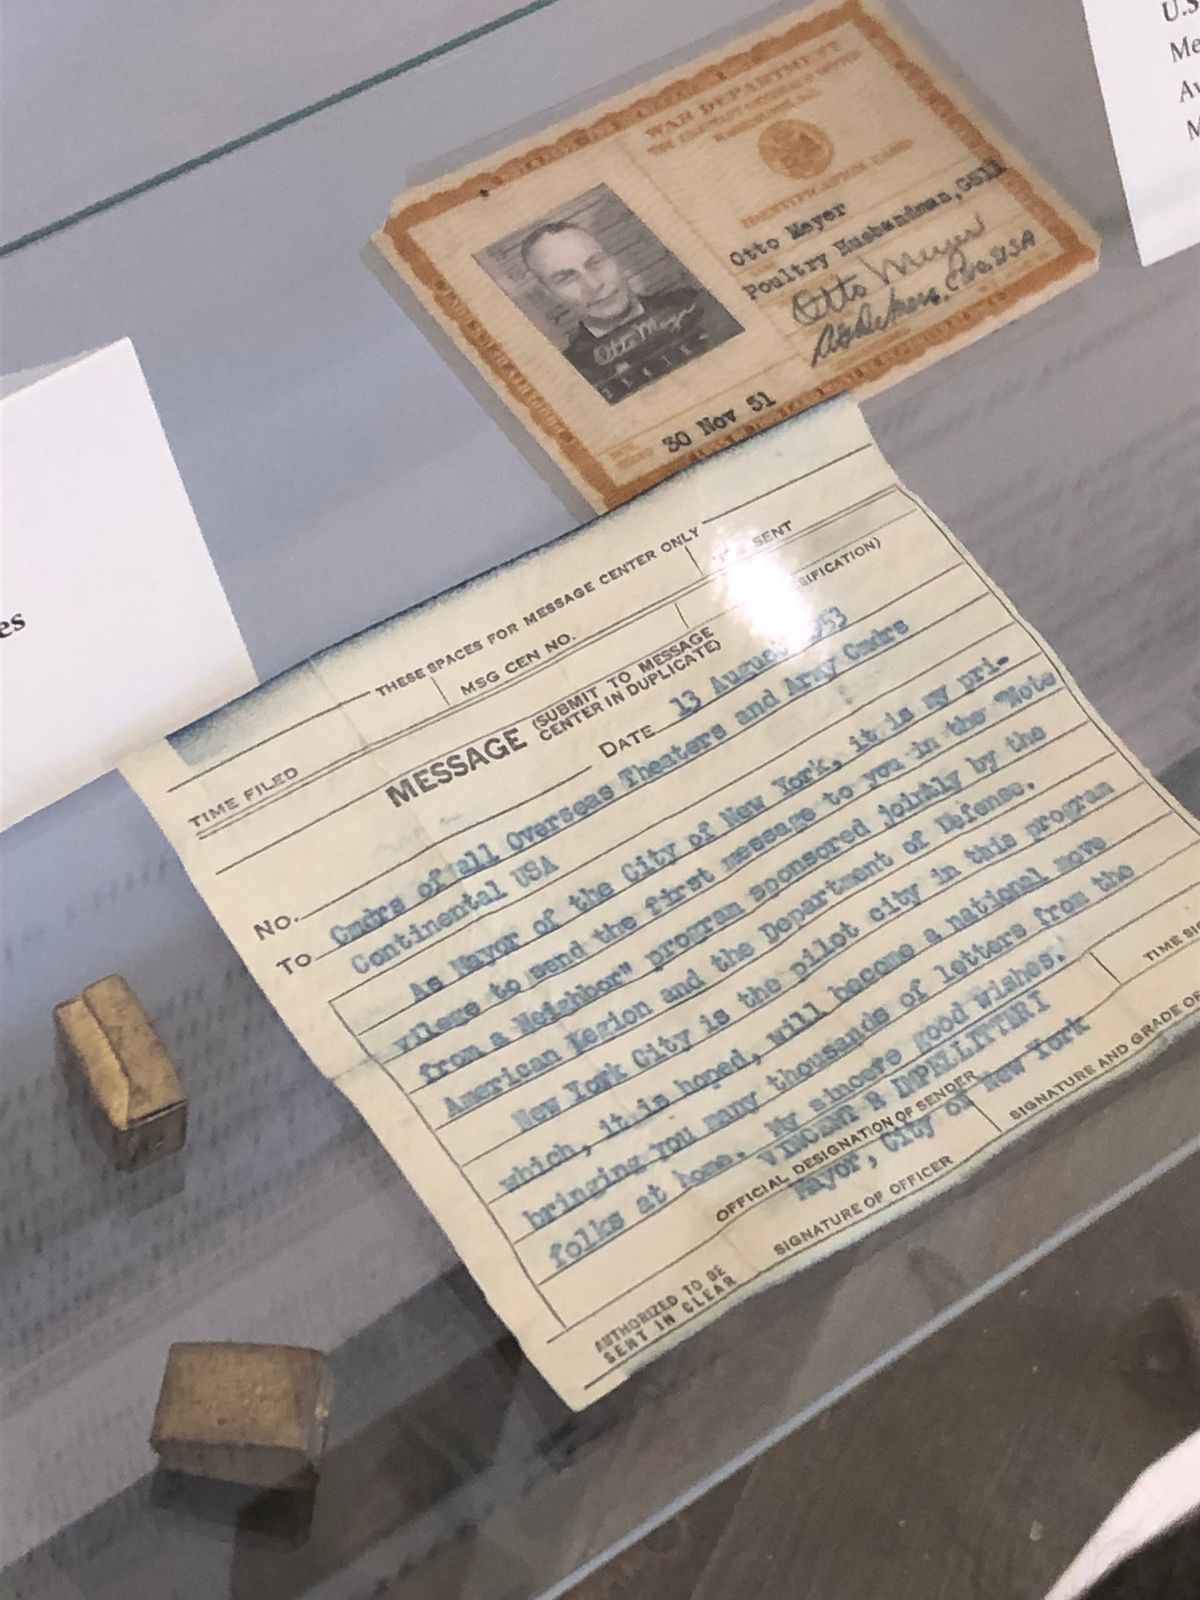 U.S
Me
Av
M
WAR DEPARTMENT
WASHINGTON, D.C.
IDENTIFICATION CARD
Otto Meyer
Poultry Husbandman, GS11
Otto Meyer
Otto Meyer
30 Nov 51
es
THESE SPACES FOR MESSAGE CENTER ONLY
TIME FILED
MSG CEN NO.
SENT
MESSAGE (SUBMIT TO MESSAGE
CENTER IN DUPLICATE)
SIFICATION)
No.
DATE 13 August 53
To Cmdrs of all Overseas Theaters and Army Cmdrs
Continental USA
As Mayor of the City of New York, it is my pri-
vilege to send the first message to you in the "Note
from a Neighbor" program sponsored jointly by the
American Legion and the Department of Defense.
New York City is the pilot city in this program
which, it is hoped, will become a national move
bringing you many thousands of letters from the
folks at home. My sincere good wishes.
VINCENT R IMPELLITTERI
OFFICIAL DESIGNATION OF SENDER
TIME SI
Mayor, City of New York
SIGNATURE OF OFFICER
SIGNATURE AND GRADE OF
AUTHORIZED TO BE
SENT IN CLEAR